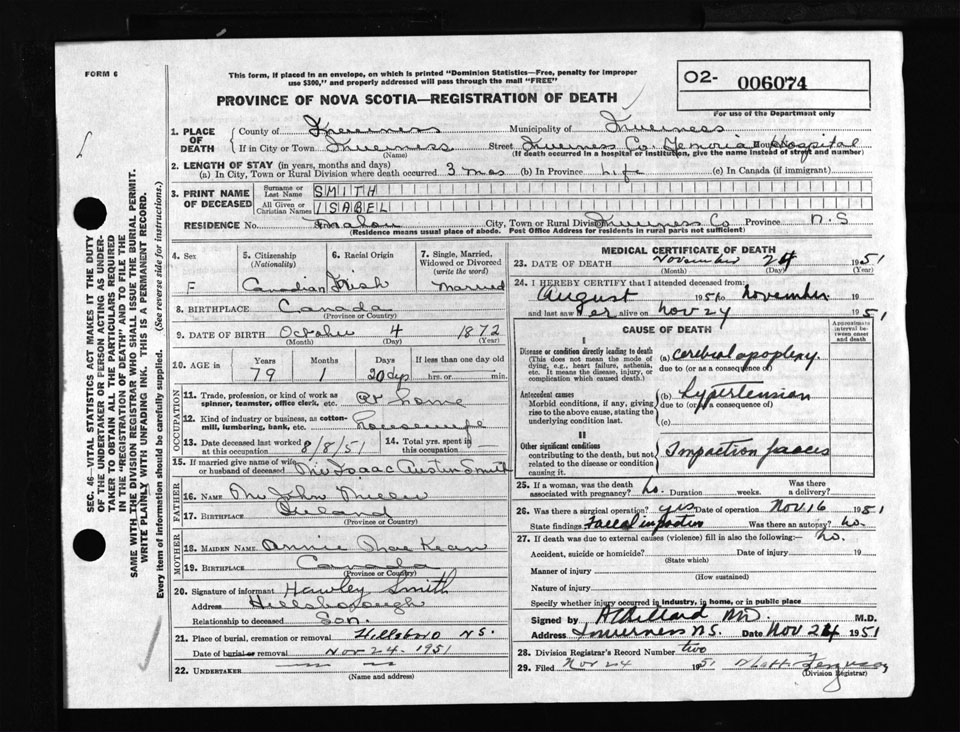 FORM 6
This form, if placed in an envelope, on which is printed "Dominion Statistics—Free, penalty for improper
use $300," and properly addressed will pass through the mail "FREE"
PROVINCE OF NOVA SCOTIA—REGISTRATION OF DEATH
O2- 006074
For use of the Department only
SEC. 46—VITAL STATISTICS ACT MAKES IT THE DUTY
OF THE UNDERTAKER OR PERSON ACTING AS UNDER-
TAKER TO OBTAIN ALL THE PARTICULARS REQUIRED
IN THE "REGISTRATION OF DEATH" AND TO FILE THE
SAME WITH THE DIVISION REGISTRAR WHO SHALL ISSUE THE BURIAL PERMIT.
WRITE PLAINLY WITH UNFADING INK. THIS IS A PERMANENT RECORD.
Every item of information should be carefully supplied. (See reverse side for instructions.)
1. PLACE OF DEATH
County of Inverness Municipality of Inverness
If in City or Town Inverness Street Inverness Co. Memorial House Hospital
(Name) (If death occurred in a hospital or institution, give the name instead of street and number)
2. LENGTH OF STAY (in years, months and days)
(a) In City, Town or Rural Division where death occurred 3 mos (b) In Province Life (c) In Canada (if immigrant)
3. PRINT NAME OF DECEASED
Surname or Last Name SMITH
All Given or Christian Names ISABEL
RESIDENCE No. Mabou City, Town or Rural Division Inverness Co. Province N.S
(Residence means usual place of abode. Post Office Address for residents in rural parts not sufficient)
4. Sex F
5. Citizenship (Nationality) Canadian
6. Racial Origin Irish
7. Single, Married, Widowed or Divorced (write the word) Married
8. BIRTHPLACE Canada
(Province or Country)
9. DATE OF BIRTH October 4 1872
(Month) (Day) (Year)
10. AGE in Years Months Days If less than one day old
79 1 20 dys hrs. or min.
OCCUPATION
11. Trade, profession, or kind of work as
spinner, teamster, office clerk, etc. at home
12. Kind of industry or business, as cotton-
mill, lumbering, bank, etc. housewife
13. Date deceased last worked at this occupation 8/8/51
14. Total yrs. spent in this occupation —
15. If married give name of wife or husband of deceased Mr Isaac Austin Smith
FATHER
16. NAME Mr John Miller
17. BIRTHPLACE Ireland
(Province or Country)
MOTHER
18. MAIDEN NAME Annie Kean
19. BIRTHPLACE Canada
(Province or Country)
20. Signature of informant Hawley Smith
Address Hillsborough
Relationship to deceased Son.
21. Place of burial, cremation or removal Hillsboro N.S.
Date of burial or removal Nov-24-1951
22. UNDERTAKER
(Name and address)
MEDICAL CERTIFICATE OF DEATH
23. DATE OF DEATH November 24 1951
(Month) (Day) (Year)
24. I HEREBY CERTIFY that I attended deceased from:
August 1951 to November 19
and last saw her alive on Nov 24 1951
CAUSE OF DEATH
Approximate interval between onset and death
I
Disease or condition directly leading to death (a) Cerebral apoplexy.
(This does not mean the mode of dying, e.g., heart failure, asthenia, etc. It means the disease, injury, or complication which caused death.)
due to (or as a consequence of)
Antecedent causes (b) Hypertension
Morbid conditions, if any, giving rise to the above cause, stating the underlying condition last.
due to (or as a consequence of)
(c)
II
Other significant conditions Impaction faeces
contributing to the death, but not related to the disease or condition causing it.
25. If a woman, was the death associated with pregnancy? no. Duration weeks. Was there a delivery?
26. Was there a surgical operation? yes Date of operation Nov 16 1951
State findings Faecal impaction Was there an autopsy? no.
27. If death was due to external causes (violence) fill in also the following:— no.
Accident, suicide or homicide? Date of injury 19
(State which)
Manner of injury
(How sustained)
Nature of injury
Specify whether injury occurred in industry, in home, or in public place
Signed by MD. M.D.
Address Inverness N.S. Date Nov 24 1951
28. Division Registrar's Record Number two
29. Filed Nov 24 1951 Ferguson
(Division Registrar)